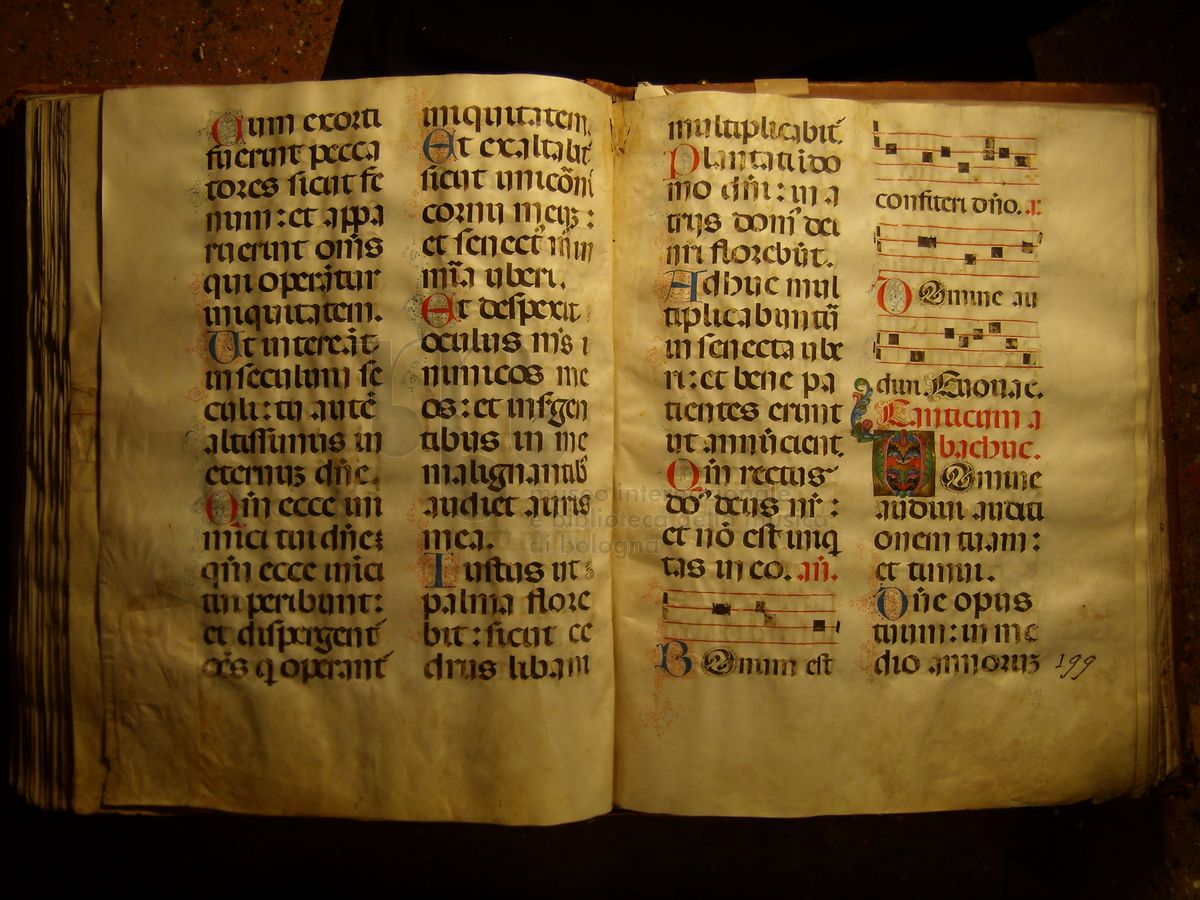 Cum exorti
fuerint pecca
tores sicut fe
num : et appa
ruerint om̄s
qui operātur
iniquitatem.
Ut intereāt
in seculum se
culi : tu autē
altissimus in
eternuȝ dn̄e.
Qm̄ ecce ini
mici tui dn̄e :
qm̄ ecce inīci
tui peribunt :
et dispergent᷑
oēs q̇ operant᷑
iniquitatem.
Et exaltabit᷑
sicut unicōni
cornu meuȝ :
et senect᷑
mīa uberi.
Et despexit
oculus m̄s i
nimicos me
os : et insurgen
tibus in me
malignantib᷒
audiet auris
mea.
Iustus ut
palma flore
bit : sicut ce
drus libani
multiplicabit᷑
Plantati i do
mo dn̄i : in a
trijs dom᷒ dei
nr̄i florebūt.
Adhuc mul
tiplicabuntū
in senecta ube
ri : et bene pa
tientes erunt
ut annūcient.
Qm̄ rectus
do᷒ deus nr̄ :
et nō est iniq̇
tas in eo. an̄.
Bonum est
confiteri dn̄o.
Domine au
diui.
Canticum a
bachuc.
Domine
audiui auditi
onem tuam :
et timui.
Dn̄e opus
tuum : in me
dio annoruȝ
199
museo internazionale
e biblioteca della musica
di bologna